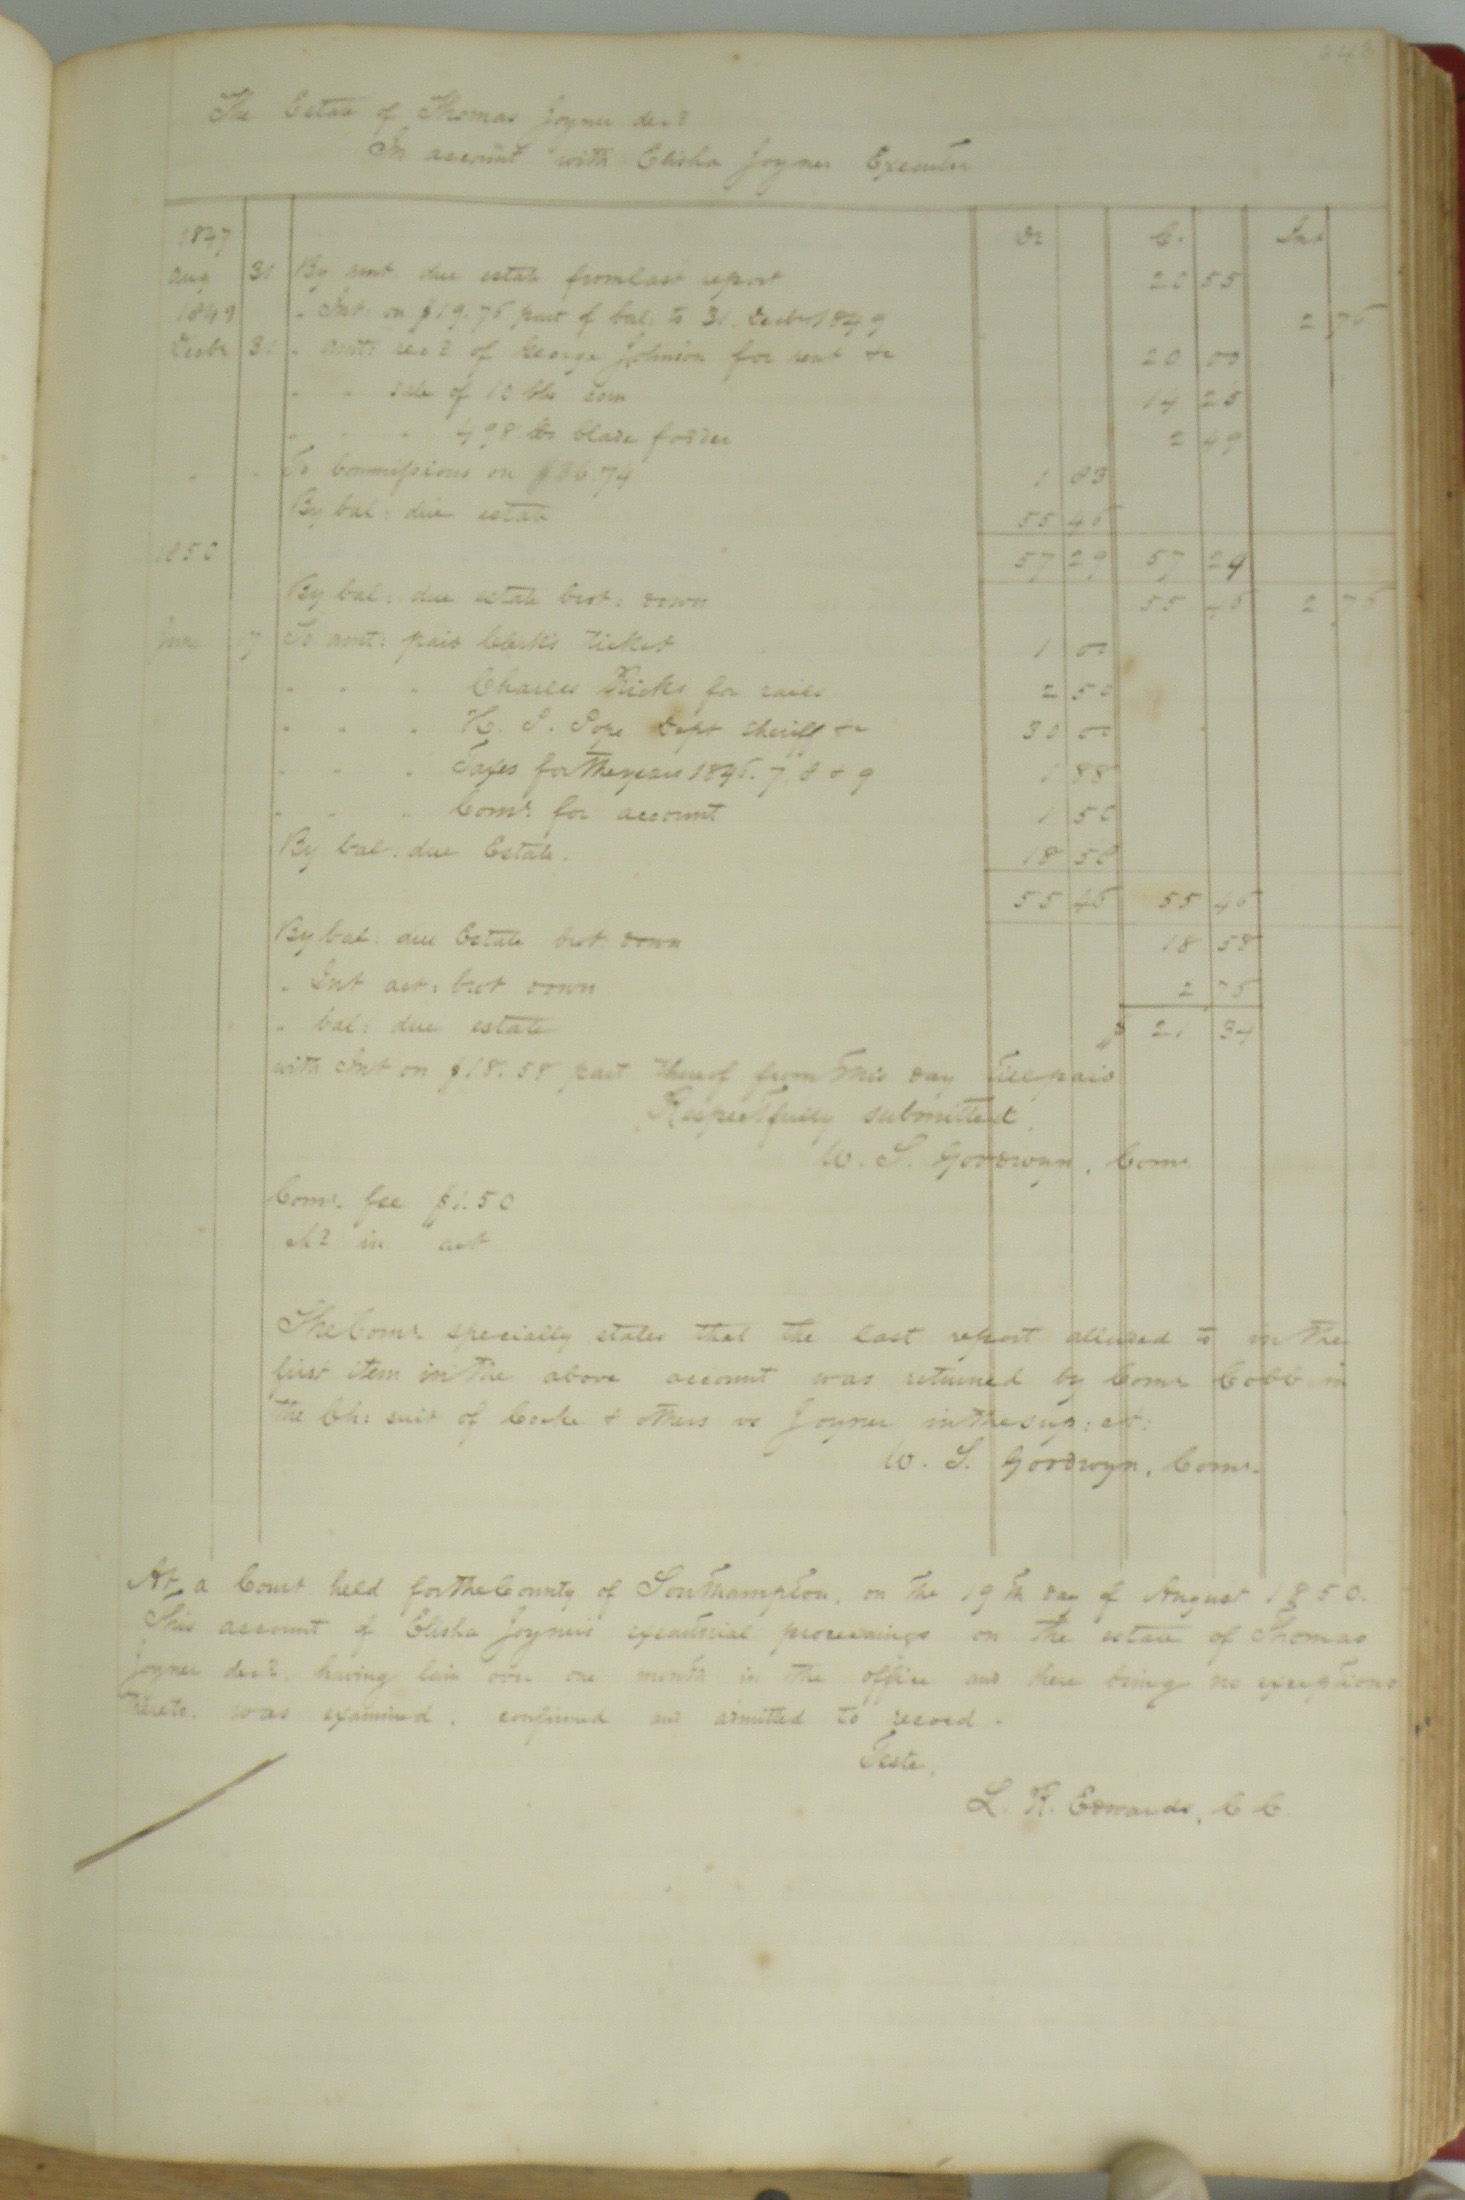 243
The Estate of Thomas Joyner decd
In account with Elisha Joyner Executor
1847 Dr Cr. Int
Aug 31 By amt. due estate from last report 20 55
1849 " Int: on $19.76 part of bal: to 31. Decbr 1849 2 76
Decbr 31 " amt: recd of George Johnson for rent &c 20 00
" " sale of 10 bbs corn 14 25
" " " 498 lbs blade fodder 2 49
" " To Commissions on $36.74 1 83
By bal: due estate 55 46
1850 57 29 57 29
By bal: due estate brot: down 55 46 2 76
June 17 To amt: paid Clerk's ticket 1 00
" " " Charles Ricks for rails 2 50
" " " H. J. Pope Dept Sheriff &c 30 00
" " " Taxes for the years 1846. 7. 8 & 9 1 88
" " " Comr. for account 1 50
By bal: due Estate. 18 58
55 46 55 46
By bal: due Estate brot: down 18 58
" Int act: brot down 2 76
" bal: due estate $ 21 34
with Int on $18.58 part thereof from this day till paid
Respectfully submitted.
W. S. Goodwyn, Comr.
Comr. fee $1.50
chd in act
The Comr. specially states that the last report alluded to in the
first item in the above account was returned by Comr Cobb in
the Ch: suit of Cocke & others vs Joyner in the sup: ct:
W. S. Goodwyn, Comr.
At a Court held for the County of Southampton, on the 19th day of August 1850.
This account of Elisha Joyner's executorial proceedings on the estate of Thomas
Joyner decd. having lain over one month in the office and there being no exceptions
thereto. was examined. confirmed and admitted to record.
Teste.
L. R. Edwards, C C